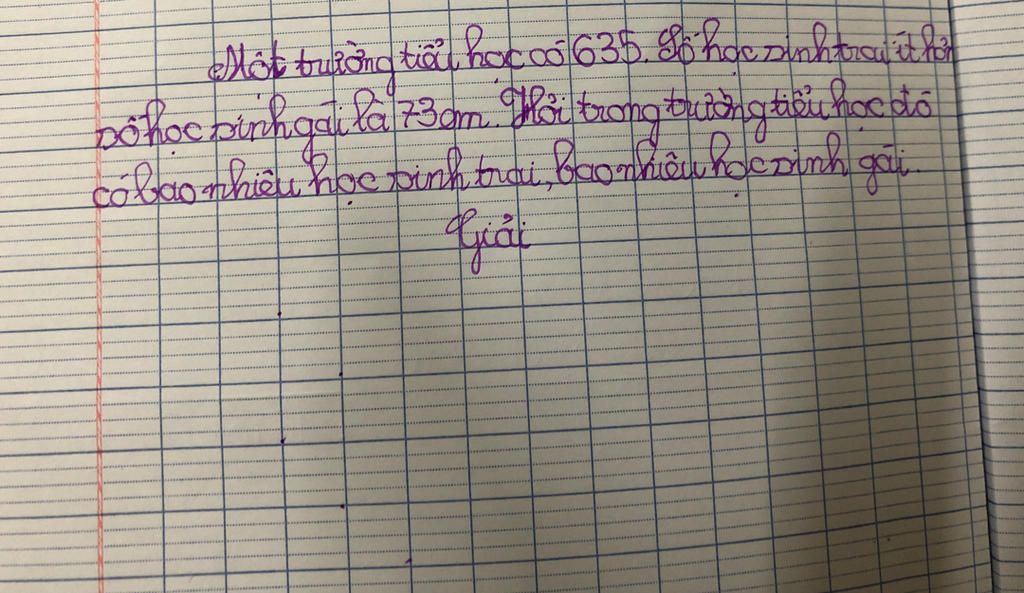 Một trường tiểu học có 635. Số học sinh trai ít hơn
số học sinh gái là 73 em. Hỏi trong trường tiểu học đó
có bao nhiêu học sinh trai, bao nhiêu học sinh gái.
Giải